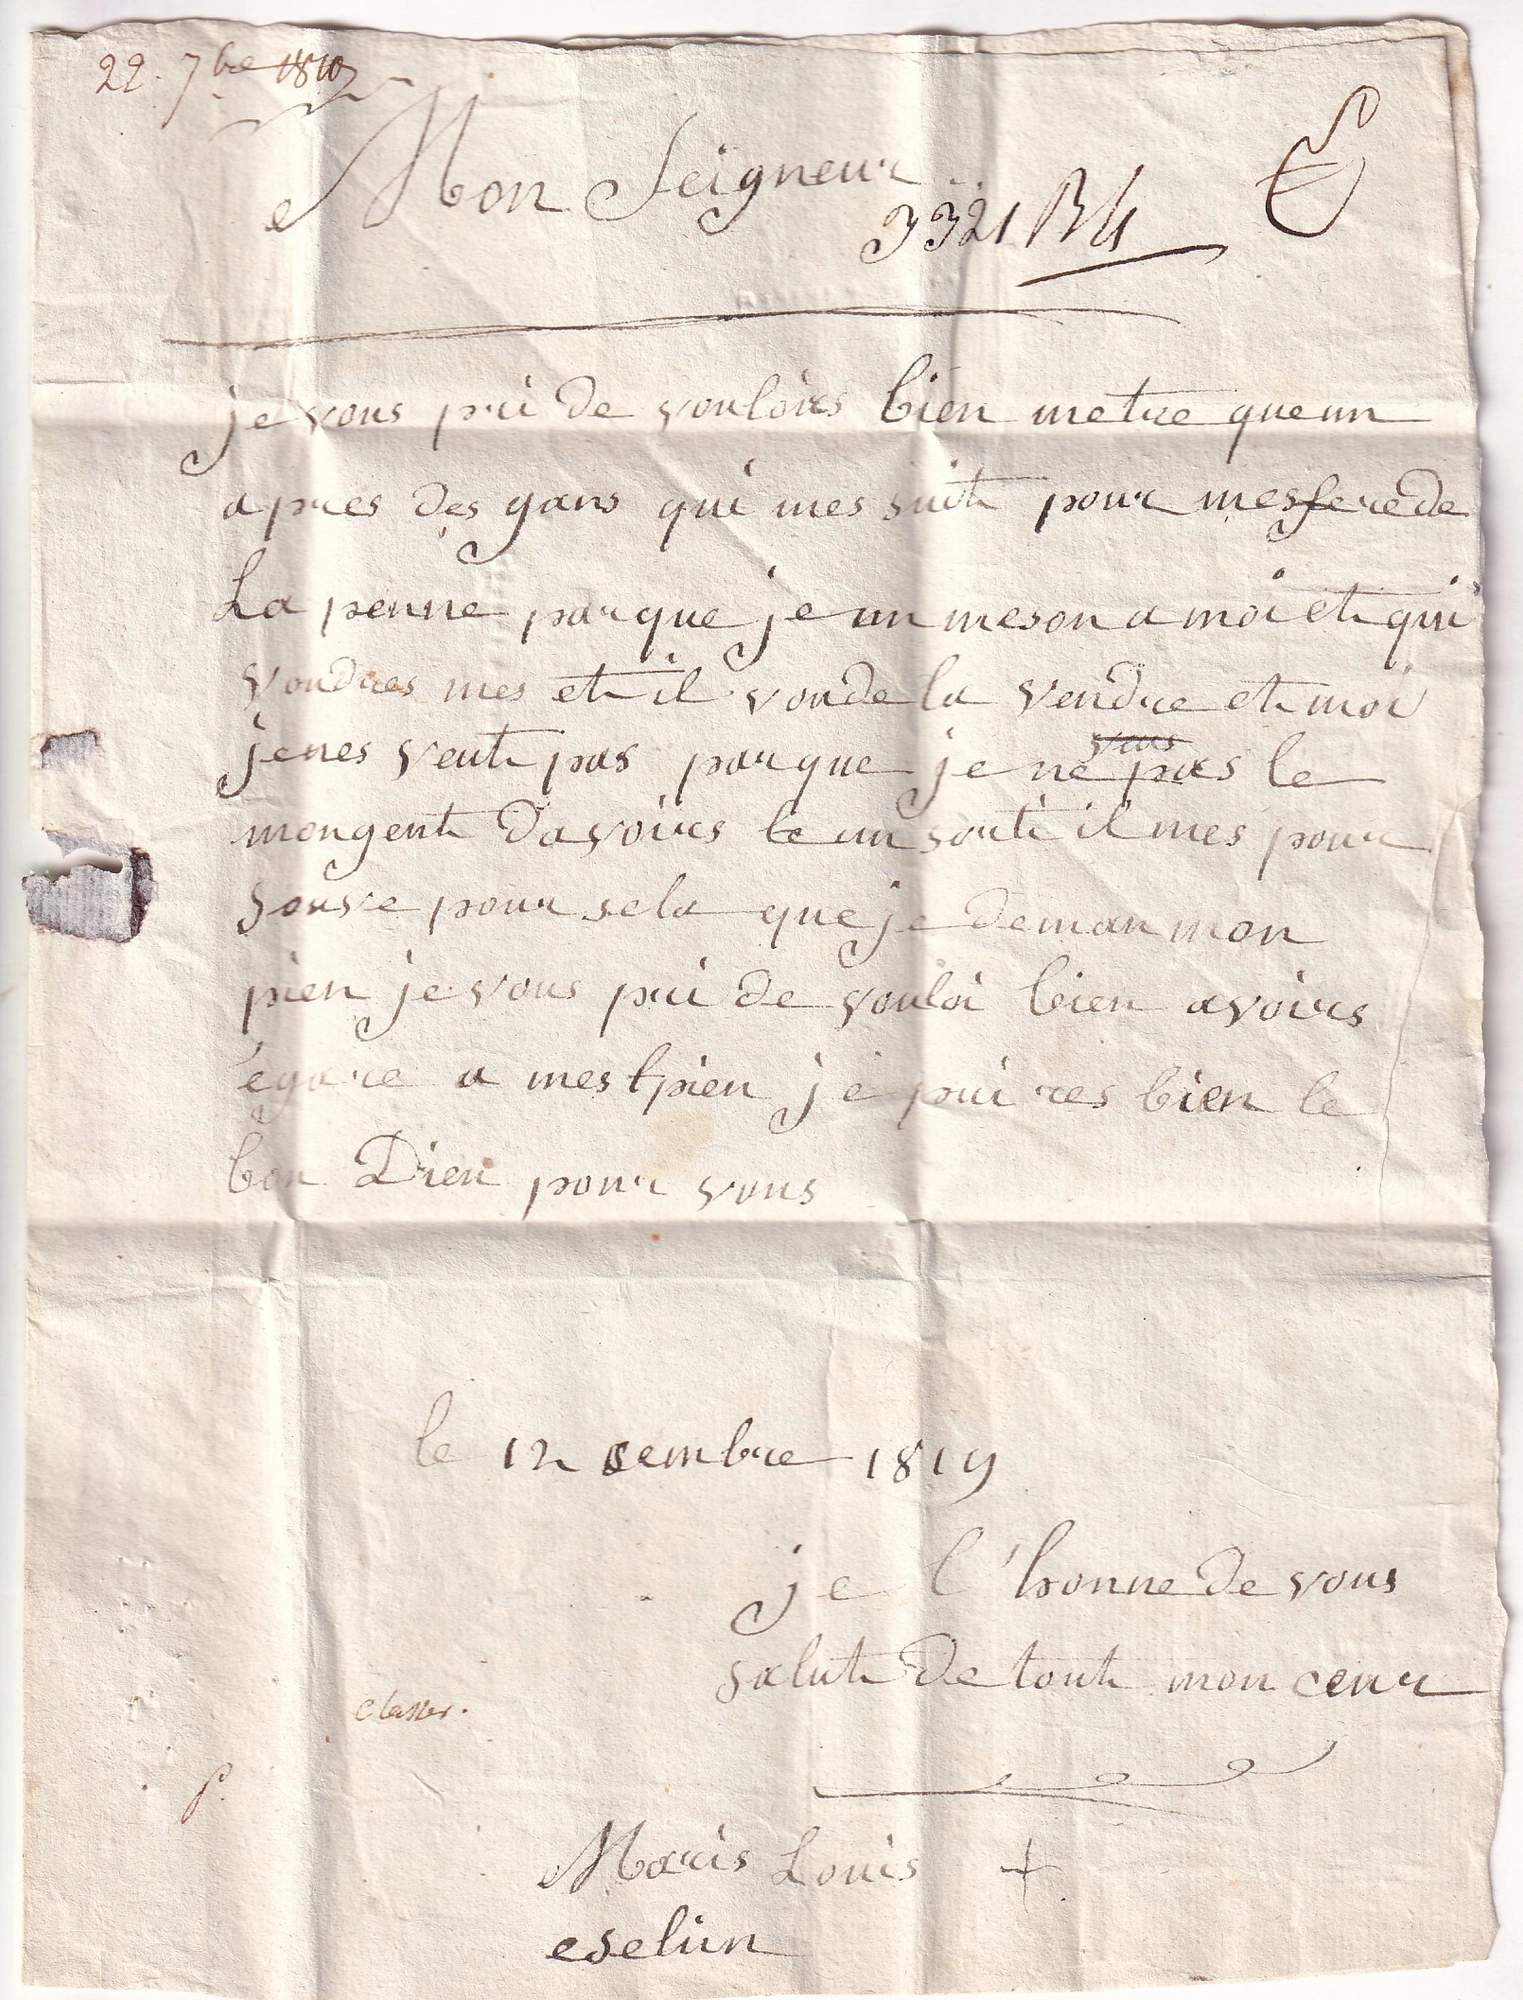 22. 7bre 1819
Mon Seigneur
3321 B4
je vous pri de voulōirs bien metre queun
apres des gans qui mes suit pour mesferede
La penne parque je un meson a moi et qui
voudres mes et il voude la vendre et moi
jenes veut pas parque je ne pas le
mongent davoirs le un sorti il mes pour
souve pour sela que je deman mon
pien je vous pri de vouloi bien avoirs
égare a mes pien je prires bien le
bon Dieu pour vous
le 12 sembre 1819
je l'honne de vous
salut de tout mon ceur
classer.
Maris Louis +
eselin